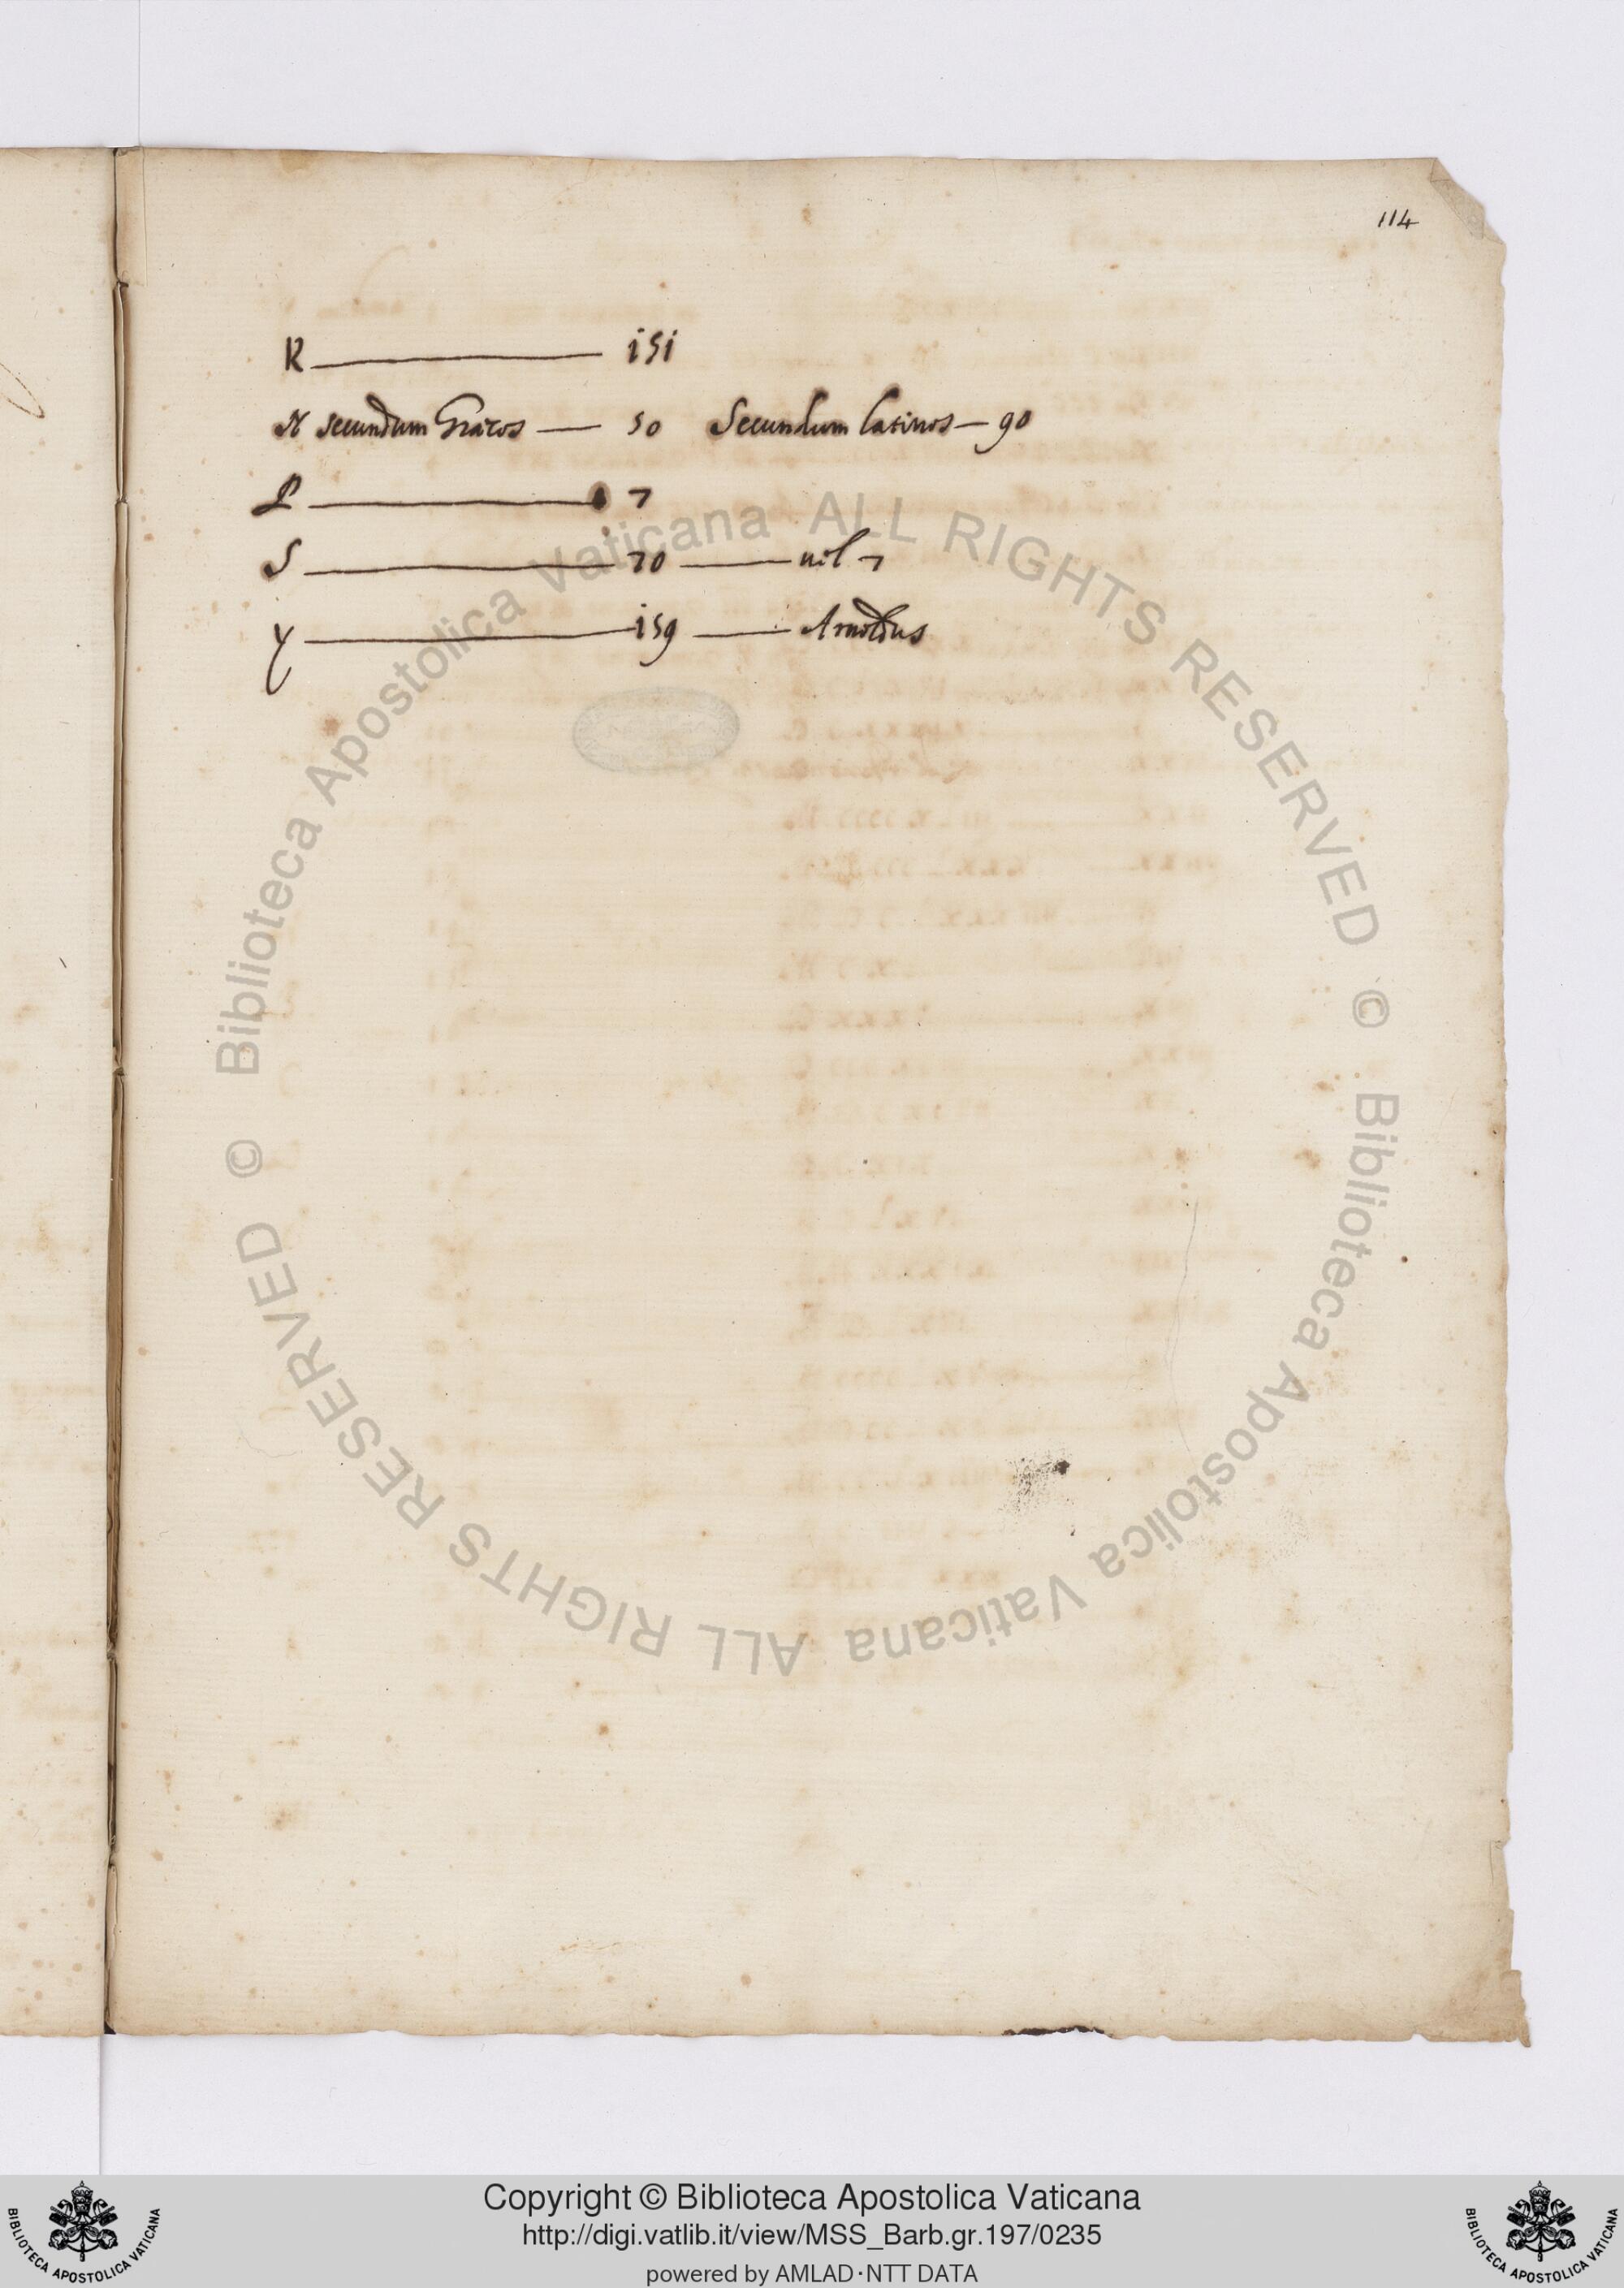 114
K ——— 151
N secundum Græcos — 50 Secundum latinos — 90
P ——— 7
S ——— 70 —— vel 7
Y ——— 159 —— Arnoldus
© Biblioteca Apostolica Vaticana ALL RIGHTS RESERVED © Biblioteca Apostolica Vaticana ALL RIGHTS RESERVED
Copyright © Biblioteca Apostolica Vaticana
http://digi.vatlib.it/view/MSS_Barb.gr.197/0235
powered by AMLAD·NTT DATA
BIBLIOTECA APOSTOLICA VATICANA
BIBLIOTECA APOSTOLICA VATICANA